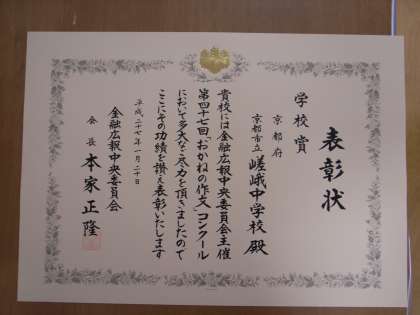 表彰状
学校賞
京都府
京都市立 嵯峨中学校 殿
貴校には金融広報中央委員会主催
第四十七回「おかねの作文」コンクール
において多大なご尽力を頂きましたので
ここにその功績を讃え表彰いたします
平成二十七年一月二十日
金融広報中央委員会
会長 本家正隆